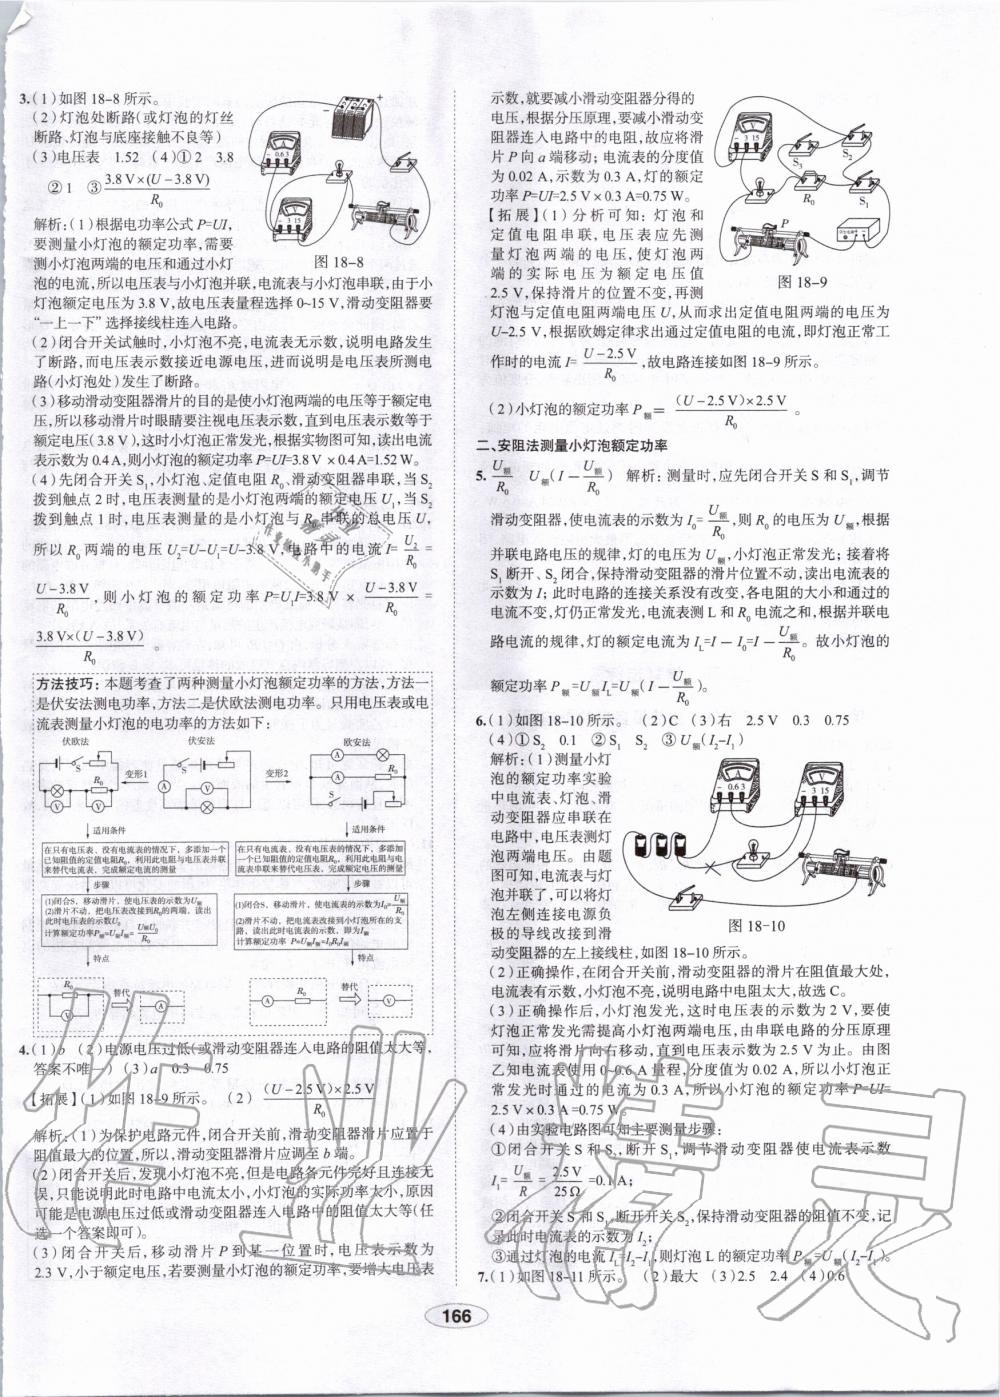 3.(1)如图18-8所示。
(2)灯泡处断路(或灯泡的灯丝
断路、灯泡与底座接触不良等)
(3)电压表 1.52 (4)①2 3.8
②1 ③3.8 V×(U-3.8 V)/R₀
图18-8
解析:(1)根据电功率公式P=UI,
要测量小灯泡的额定功率,需要
测小灯泡两端的电压和通过小灯
泡的电流,所以电压表与小灯泡并联,电流表与小灯泡串联,由于小
灯泡额定电压为3.8 V,故电压表量程选择0~15 V,滑动变阻器要
“一上一下”选择接线柱连入电路。
(2)闭合开关试触时,小灯泡不亮,电流表无示数,说明电路发生
了断路,而电压表示数接近电源电压,进而说明是电压表所测电
路(小灯泡处)发生了断路。
(3)移动滑动变阻器滑片的目的是使小灯泡两端的电压等于额定电
压,所以移动滑片时眼睛要注视电压表示数,直到电压表示数等于
额定电压(3.8 V),这时小灯泡正常发光,根据实物图可知,读出电流
表示数为0.4 A,则小灯泡的额定功率P=UI=3.8 V×0.4 A=1.52 W。
(4)先闭合开关S₁,小灯泡、定值电阻R₀、滑动变阻器串联,当S₂
拨到触点2时,电压表测量的是小灯泡两端的额定电压U₁,当S₂
拨到触点1时,电压表测量的是小灯泡与R₀串联的总电压U,
所以R₀两端的电压U₂=U-U₁=U-3.8 V,电路中的电流I=U₂/R₀=
U-3.8 V/R₀,则小灯泡的额定功率P=U₁I=3.8 V×U-3.8 V/R₀=
3.8 V×(U-3.8 V)/R₀。
方法技巧:本题考查了两种测量小灯泡额定功率的方法,方法一
是伏安法测电功率,方法二是伏欧法测电功率。只用电压表或电
流表测量小灯泡的电功率的方法如下:
伏欧法 伏安法 欧安法
变形1 变形2
适用条件 适用条件
在只有电压表、没有电流表的情况下,多添加一个
已知阻值的定值电阻R₀,利用此电阻与电压表并联
来替代电流表,完成额定电流的测量
在只有电流表、没有电压表的情况下,多添加
一个已知阻值的定值电阻R₀,利用此电阻与电
流表串联来替代电压表,完成额定电压的测量
步骤 步骤
(1)闭合S,移动滑片,使电压表的示数为U额
(2)滑片不动,把电压表改接到R₀的两端,读出
此时电压表的示数U₀
计算额定功率P额=U额I额=U额U₀/R₀
(1)闭合S,移动滑片,使电流表的示数为I₀=U额/R₀
(2)滑片不动,把电流表改接到小灯泡所在的支
路,读出此时电流表的示数,即为I额
计算额定功率 P=U额I额=I₀R₀I额
特点 特点
替代 替代
4.(1)b (2)电源电压过低(或滑动变阻器连入电路的阻值太大等,
答案不唯一) (3)a 0.3 0.75
【拓展】(1)如图18-9所示。 (2)(U-2.5 V)×2.5 V/R₀
解析:(1)为保护电路元件,闭合开关前,滑动变阻器滑片应置于
阻值最大的位置,所以,滑动变阻器滑片应调至b端。
(2)闭合开关后,发现小灯泡不亮,但是电路各元件完好且连接无
误,只能说明此时电路中电流太小,小灯泡的实际功率太小,原因
可能是电源电压过低或滑动变阻器连入电路中的阻值太大等(任
选一个答案即可)。
(3)闭合开关后,移动滑片P到某一位置时,电压表示数为
2.3 V,小于额定电压,若要测量小灯泡的额定功率,要增大电压表
示数,就要减小滑动变阻器分得的
电压,根据分压原理,要减小滑动变
阻器连入电路中的电阻,故应将滑
片P向a端移动;电流表的分度值
为0.02 A,示数为0.3 A,灯的额定
功率P=UI=2.5 V×0.3 A=0.75 W。
【拓展】(1)分析可知:灯泡和
定值电阻串联,电压表应先测
量灯泡两端的电压,使灯泡两
端的实际电压为额定电压值
2.5 V,保持滑片的位置不变,再测
图18-9
灯泡与定值电阻两端电压U,从而求出定值电阻两端的电压为
U-2.5 V,根据欧姆定律求出通过定值电阻的电流,即灯泡正常工
作时的电流I=U-2.5 V/R₀,故电路连接如图18-9所示。
(2)小灯泡的额定功率P额=(U-2.5 V)×2.5 V/R₀。
二、安阻法测量小灯泡额定功率
5.U额/R₀ U额(I-U额/R₀) 解析:测量时,应先闭合开关S和S₁,调节
滑动变阻器,使电流表的示数为I₀=U额/R₀,则R₀的电压为U额,根据
并联电路电压的规律,灯的电压为U额,小灯泡正常发光;接着将
S₁断开、S₂闭合,保持滑动变阻器的滑片位置不动,读出电流表的
示数为I;此时电路的连接关系没有改变,各电阻的大小和通过的
电流不变,灯仍正常发光,电流表测L和R₀电流之和,根据并联电
路电流的规律,灯的额定电流为I_L=I-I₀=I-U额/R₀。故小灯泡的
额定功率P额=U额I_L=U额(I-U额/R₀)。
6.(1)如图18-10所示。 (2)C (3)右 2.5 V 0.3 0.75
(4)①S₂ 0.1 ②S₁ S₂ ③U额(I₂-I₁)
解析:(1)测量小灯
泡的额定功率实验
中电流表、灯泡、滑
动变阻器应串联在
电路中,电压表测灯
泡两端电压。由题
图可知,电压表与灯
泡并联了,可以将灯
泡左侧连接电源负
极的导线改接到滑
图18-10
动变阻器的左上接线柱,如图18-10所示。
(2)正确操作,在闭合开关前,滑动变阻器的滑片在阻值最大处,
电流表有示数,小灯泡不亮,说明电路中电阻太大,故选C。
(3)正确操作后,小灯泡发光,这时电压表的示数为2 V,要使
灯泡正常发光需提高小灯泡两端电压,由串联电路的分压原理
可知,应将滑片向右移动,直到电压表示数为2.5 V为止。由图
乙知电流表使用0~0.6 A量程,分度值为0.02 A,所以小灯泡正
常发光时通过的电流为0.3 A,所以小灯泡的额定功率P=UI=
2.5 V×0.3 A=0.75 W。
(4)由实验电路图可知主要测量步骤:
①闭合开关S和S₂,断开S₁,调节滑动变阻器使电流表示数
I₁=U额/R=2.5 V/25 Ω=0.1 A;
②闭合开关S和S₁,断开开关S₂,保持滑动变阻器的阻值不变,记
录此时电流表的示数为I₂;
③通过灯泡的电流I_L=I₂-I₁,则灯泡L的额定功率P额=U额(I₂-I₁)。
7.(1)如图18-11所示。 (2)最大 (3)2.5 2.4 (4)0.6
166
作业精灵